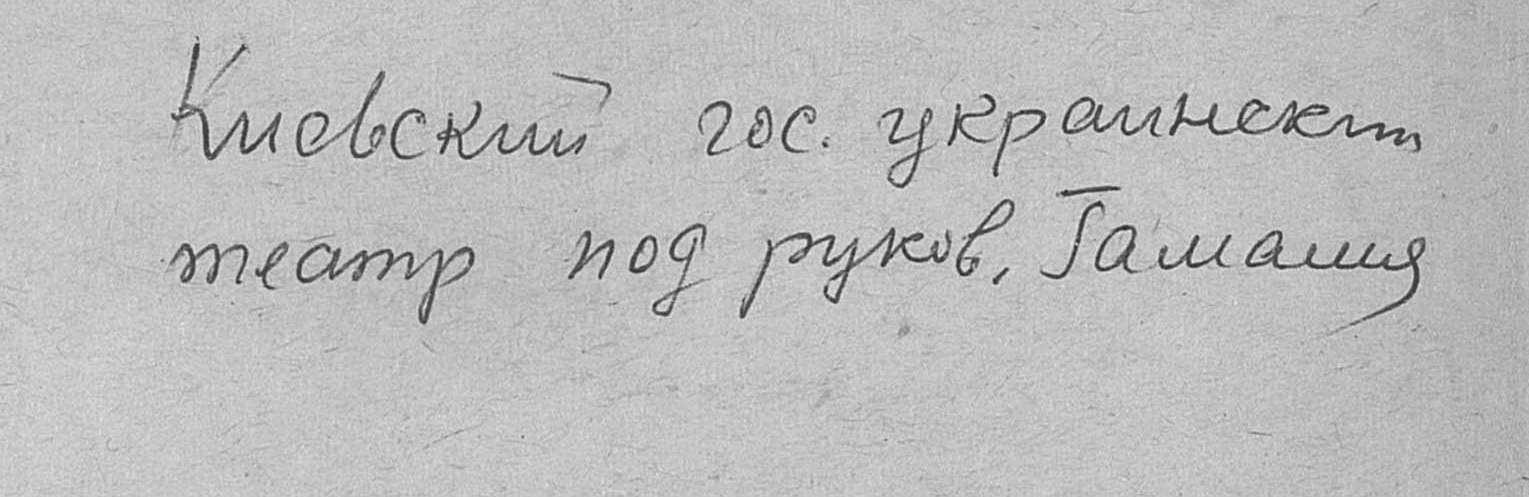 Киевский гос. украинский
театр под руков. Гамалия